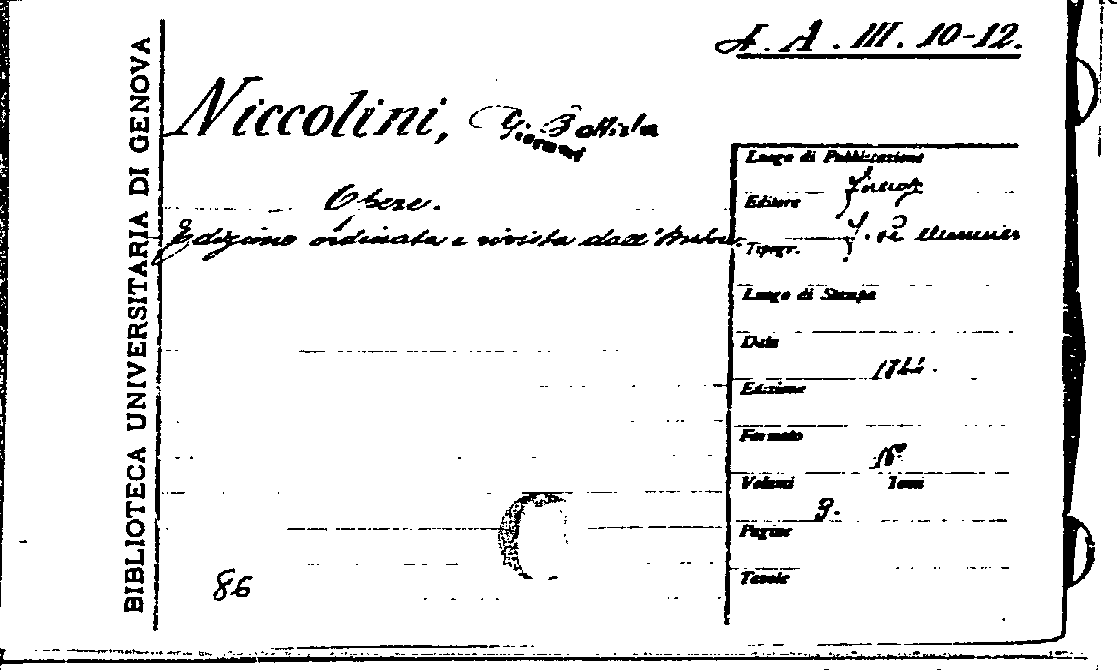 BIBLIOTECA UNIVERSITARIA DI GENOVA
4. A. III. 10-12.
Niccolini, Gio. Battista
Giovanni
Opere.
Edizione ordinata e rivista dall'Autore.
Luogo di Pubblicazione
Firenze
Editore
F. Le Monnier
Tipogr.
Luogo di Stampa
Data
1844.
Edizione
Formato
16°
Volumi Tomi
3.
Pagine
Tavole
86